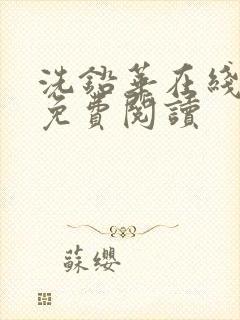 洗鉛華在綫
免費閱讀
蘇纓